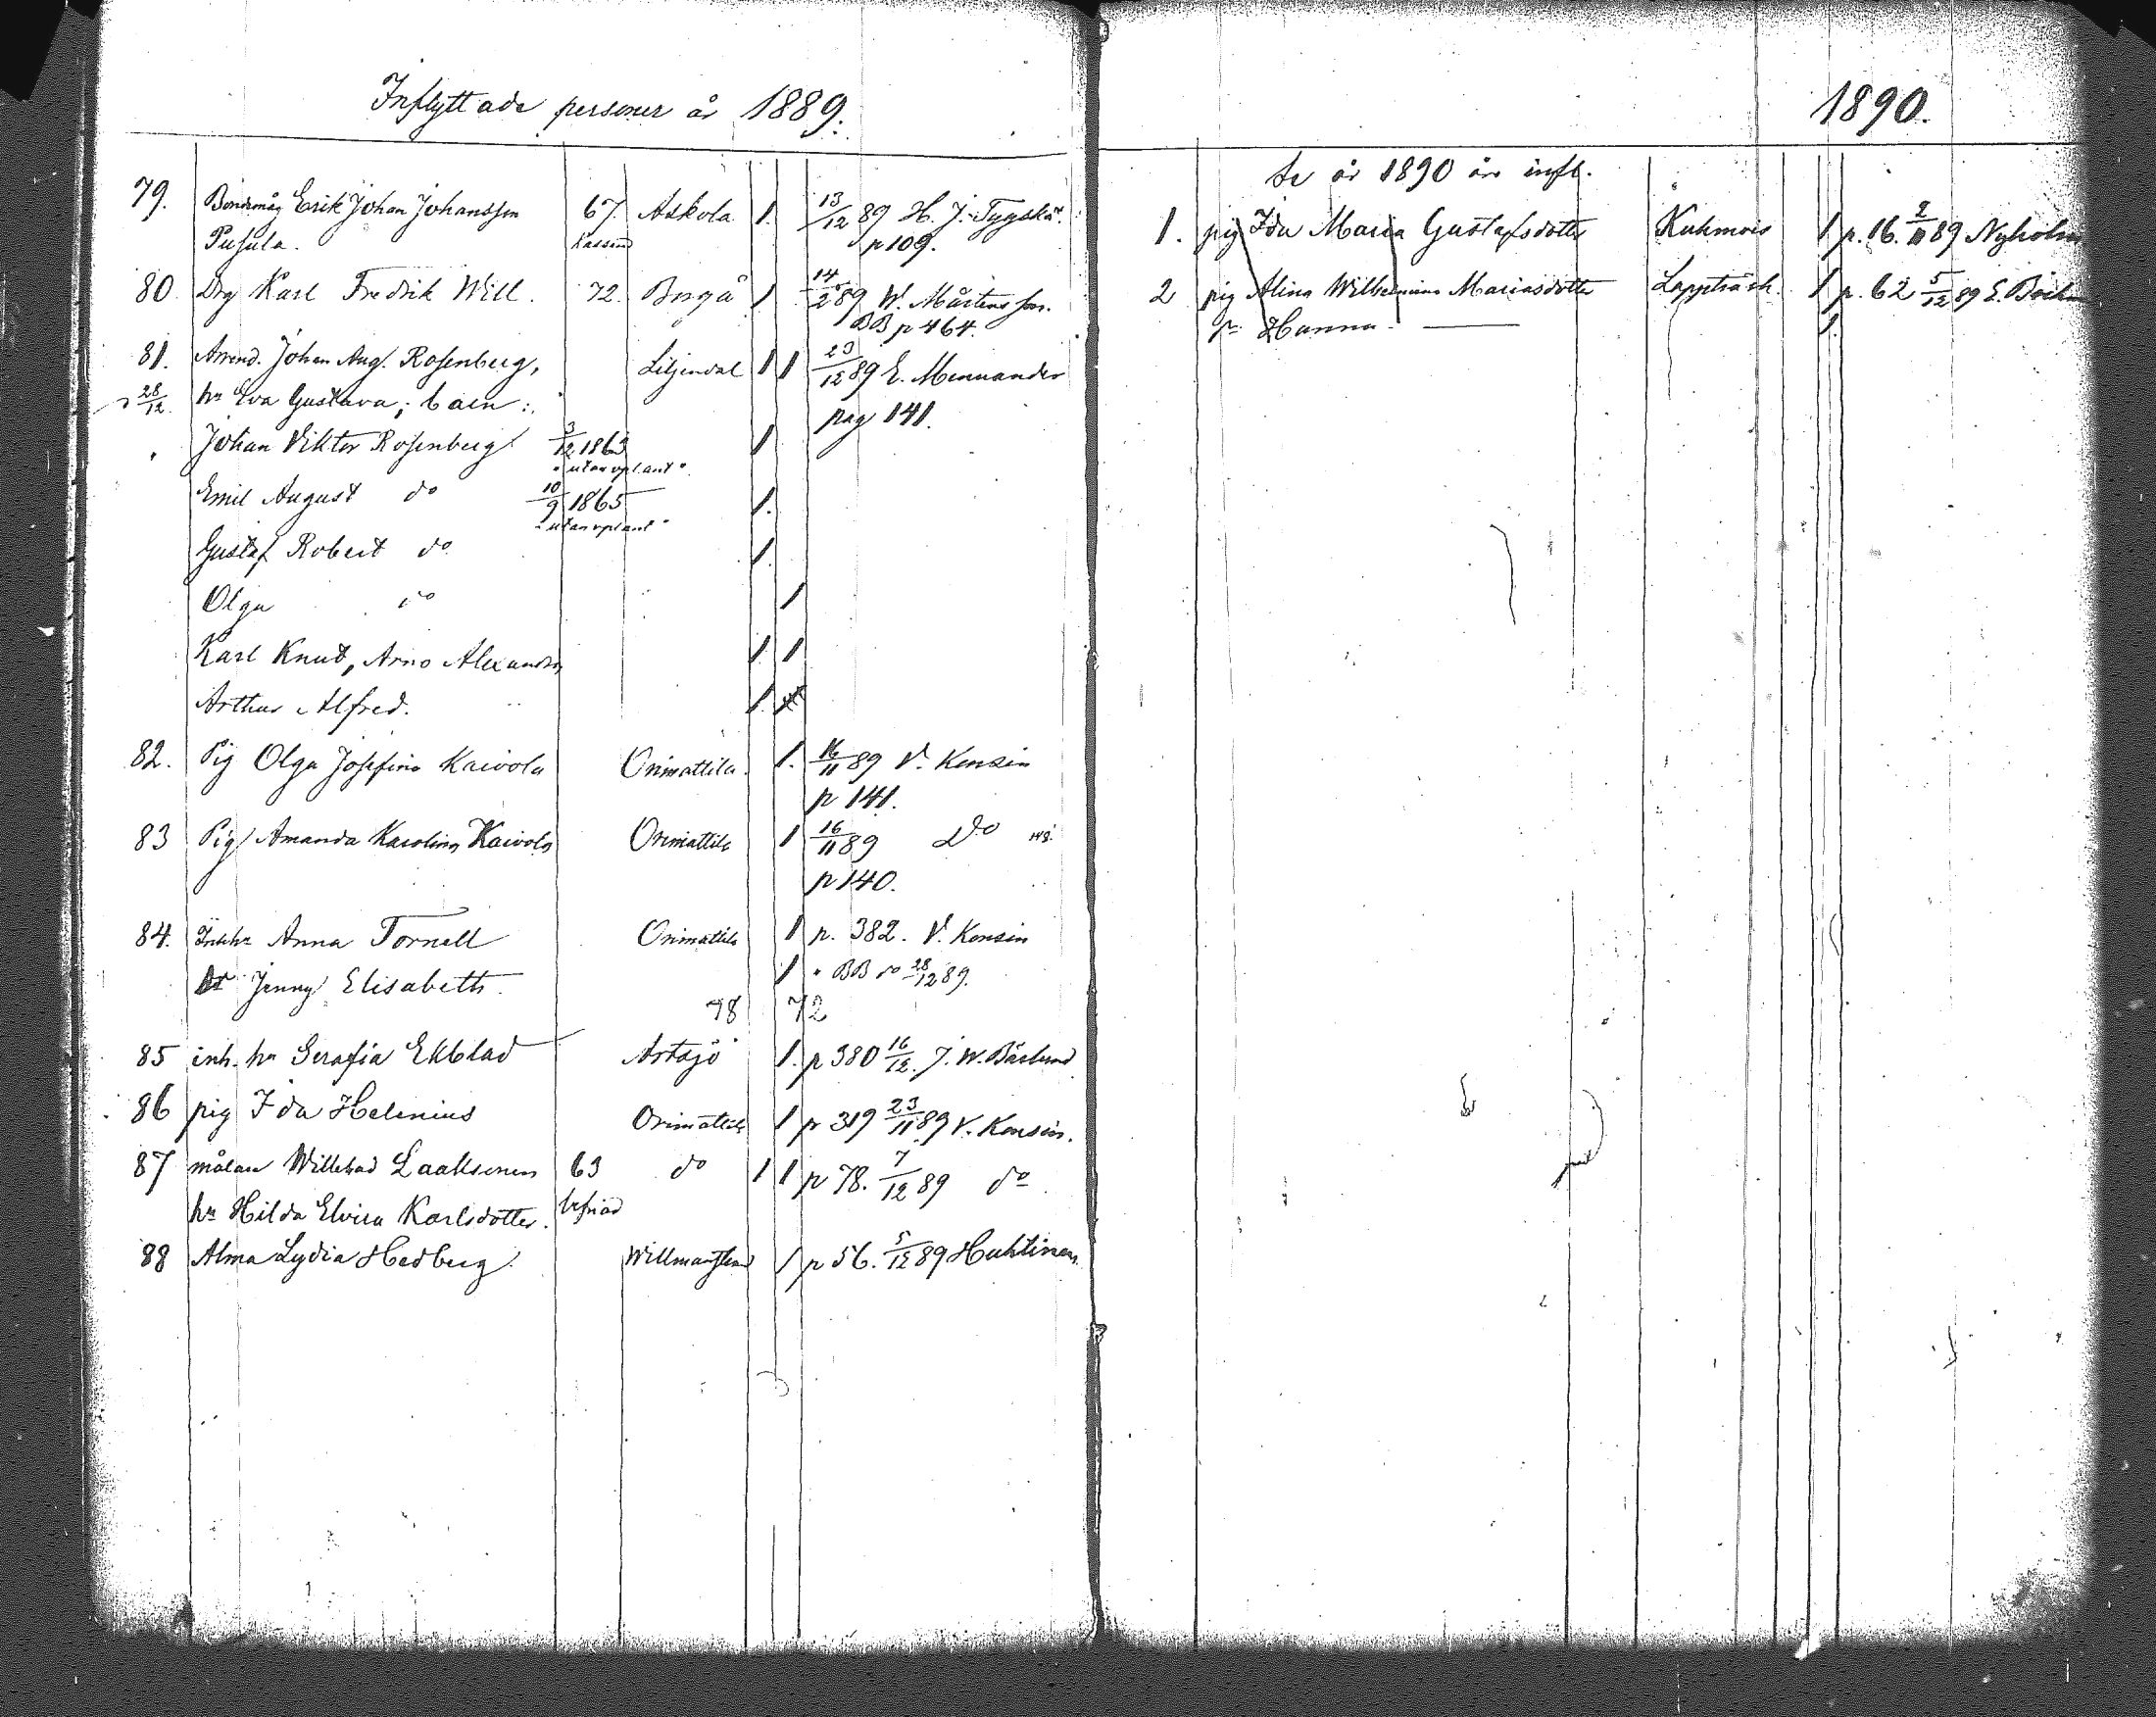 Inflyttade personer år 1889.
79. Bondemåg Erik Johan Johansson 67. Askola 1. 13/12 89 H. J. Tygsk
Pusula. kasserad p 109.
80. Drg Karl Fredrik Will. 72. Borgå 1 14/2 89 W. Mårtensson.
BB p 464.
81. Arrend. Johan Aug. Rosenberg, Liljendal 1 1 23/12 89 E. Menuander
28/12. hu Eva Gustava; barn: pag 141.
Johan Viktor Rosenberg 3/12 1863 1
"utan vpl. ant"
Emil August do 10/9 1865 1.
"utan vpl ant"
Gustaf Robert do 1.
Olga do 1
Karl Knut, Arno Alexander, 1 1
Arthur Alfred. 1.
82. Pig Olga Josefina Kaivola Orimattila. 1. 16/11 89 V. Konsin
p 141.
83 Pig Amanda Karolina Kaivola Orimattila 1 16/11 89 Do
p 140.
84. Inhhu Anna Tornell Orimattila 1 p. 382. V. Konsin
Dr Jenny Elisabeth. 1 " BB do 28/12 89.
78 72
85 inh. hu Serafia Ekblad Artsjö 1. p 380 16/12. J. W. Bärlund
86 pig Ida Helenius Orimattila 1 p 319 23/11 89 V. Konsin.
87 målare Willehad Laaksonen 63 do 1 1 p 78. 7/12 89 do
hu Hilda Elvira Karlsdotter. befriad
88 Alma Lydia Hedberg. Willmanstrand 1 p 56. 5/12 89 Huhtinen
1890.
Se år 1890 års infl.
1. pig Ida Maria Gustafsdotter Kuhmois 1 p. 16. 2/11 89 Nyholm
2 pig Alina Wilhelmina Mariasdotter Lappträsk. 1 p. 62 5/12 89 E. Böök
Hanna — 1.